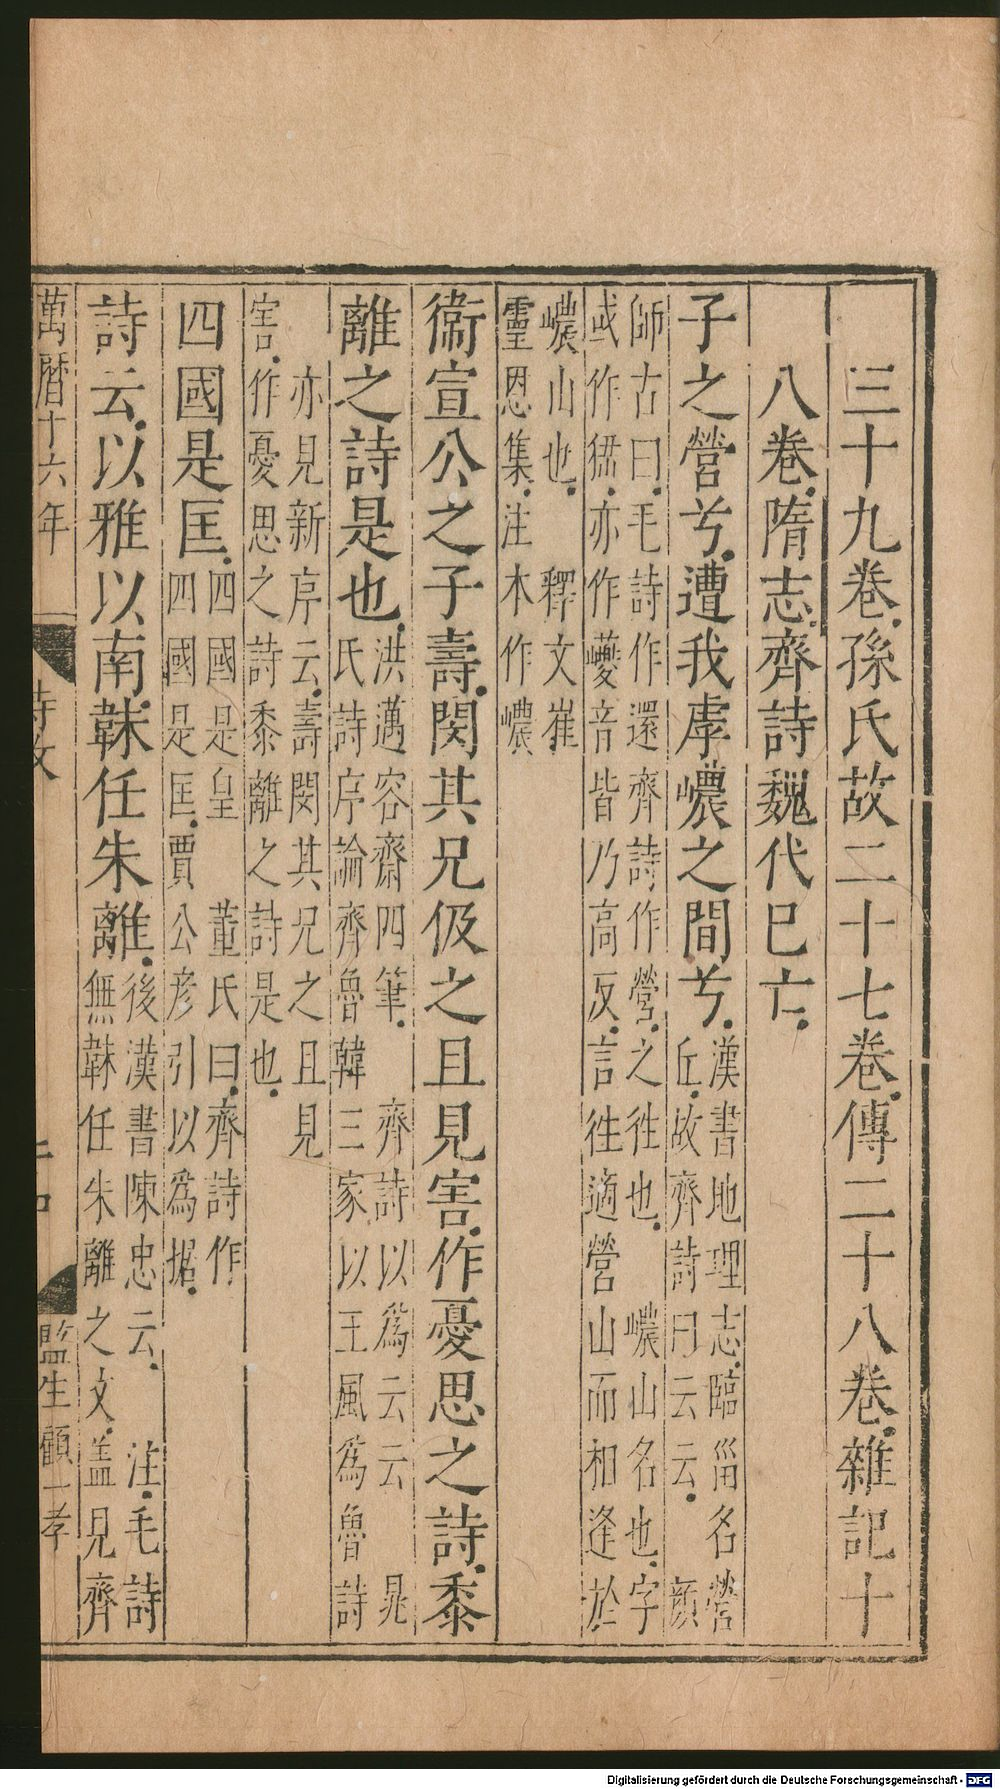 三十九卷孫氏故二十七卷傳二十八卷雜記十
八卷隋志齊詩魏代已亡
子之營兮遭我虖巙之間兮漢書地理志臨甾名營
丘故齊詩曰云云顔
師古曰毛詩作還齊詩作營之徃也巙山名也字
或作猱亦作夒音皆乃高反言徃適營山而相逢於
巙山也釋文崔
靈恩集注本作巙
衞宣公之子壽閔其兄伋之且見害作憂思之詩黍
離之詩是也洪邁容齋四筆齊詩以為云云晁
氏詩序論齊魯韓三家以王風為魯詩
亦見新序云壽閔其兄之且見
害作憂思之詩黍離之詩是也
四國是匡四國是皇董氏曰齊詩作
四國是匡賈公彦引以為据
詩云以雅以南韎任朱離後漢書陳忠云注毛詩
無韎任朱離之文盖見齊
萬曆十六年
詩攷
監生顧一孝
Digitalisierung gefördert durch die Deutsche Forschungsgemeinschaft - DFG